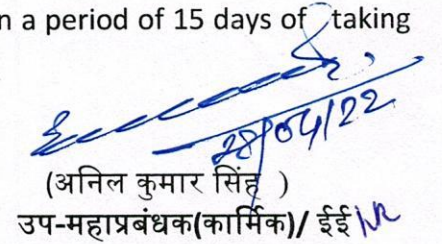 n a period of 15 days of taking
28/04/22
(अनिल कुमार सिंह )
उप-महाप्रबंधक(कार्मिक)/ ईई